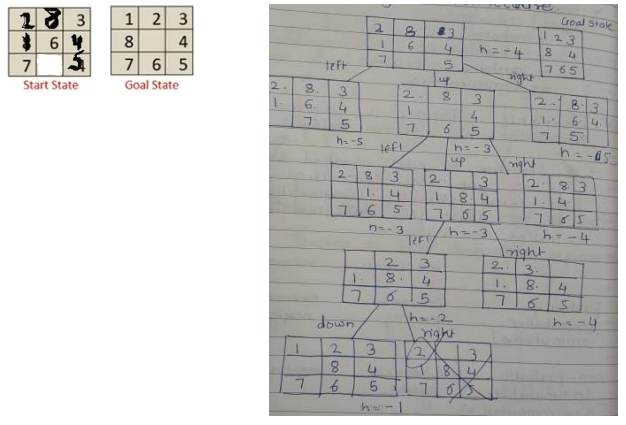 2 8 3
1 6 4
7 5
Start State
1 2 3
8 4
7 6 5
Goal State
2 8 3
1 6 4
7 5
h = -4
Goal State
1 2 3
8 4
7 6 5
left
up
right
2. 8. 3
1. 6. 4
7. 5
h = -5
2. 8 3
1. 4
7 6 5
h = -3
2. 8. 3
1. 6 4
7 5.
left
up
right
2. 8 3
1. 4
7 6 5
h = -3
2 3
1 8 4
7 6 5
h = -3
2. 8 3
1. 4
7 6 5
h = -4
left
right
2 3
1. 8. 4
7 6 5
h = -2
2. 3.
1. 8. 4
7 6 5
h = -4
down
right
1 2 3
8 4
7 6 5
h = -1
2 3
1 8 4
7 6 5